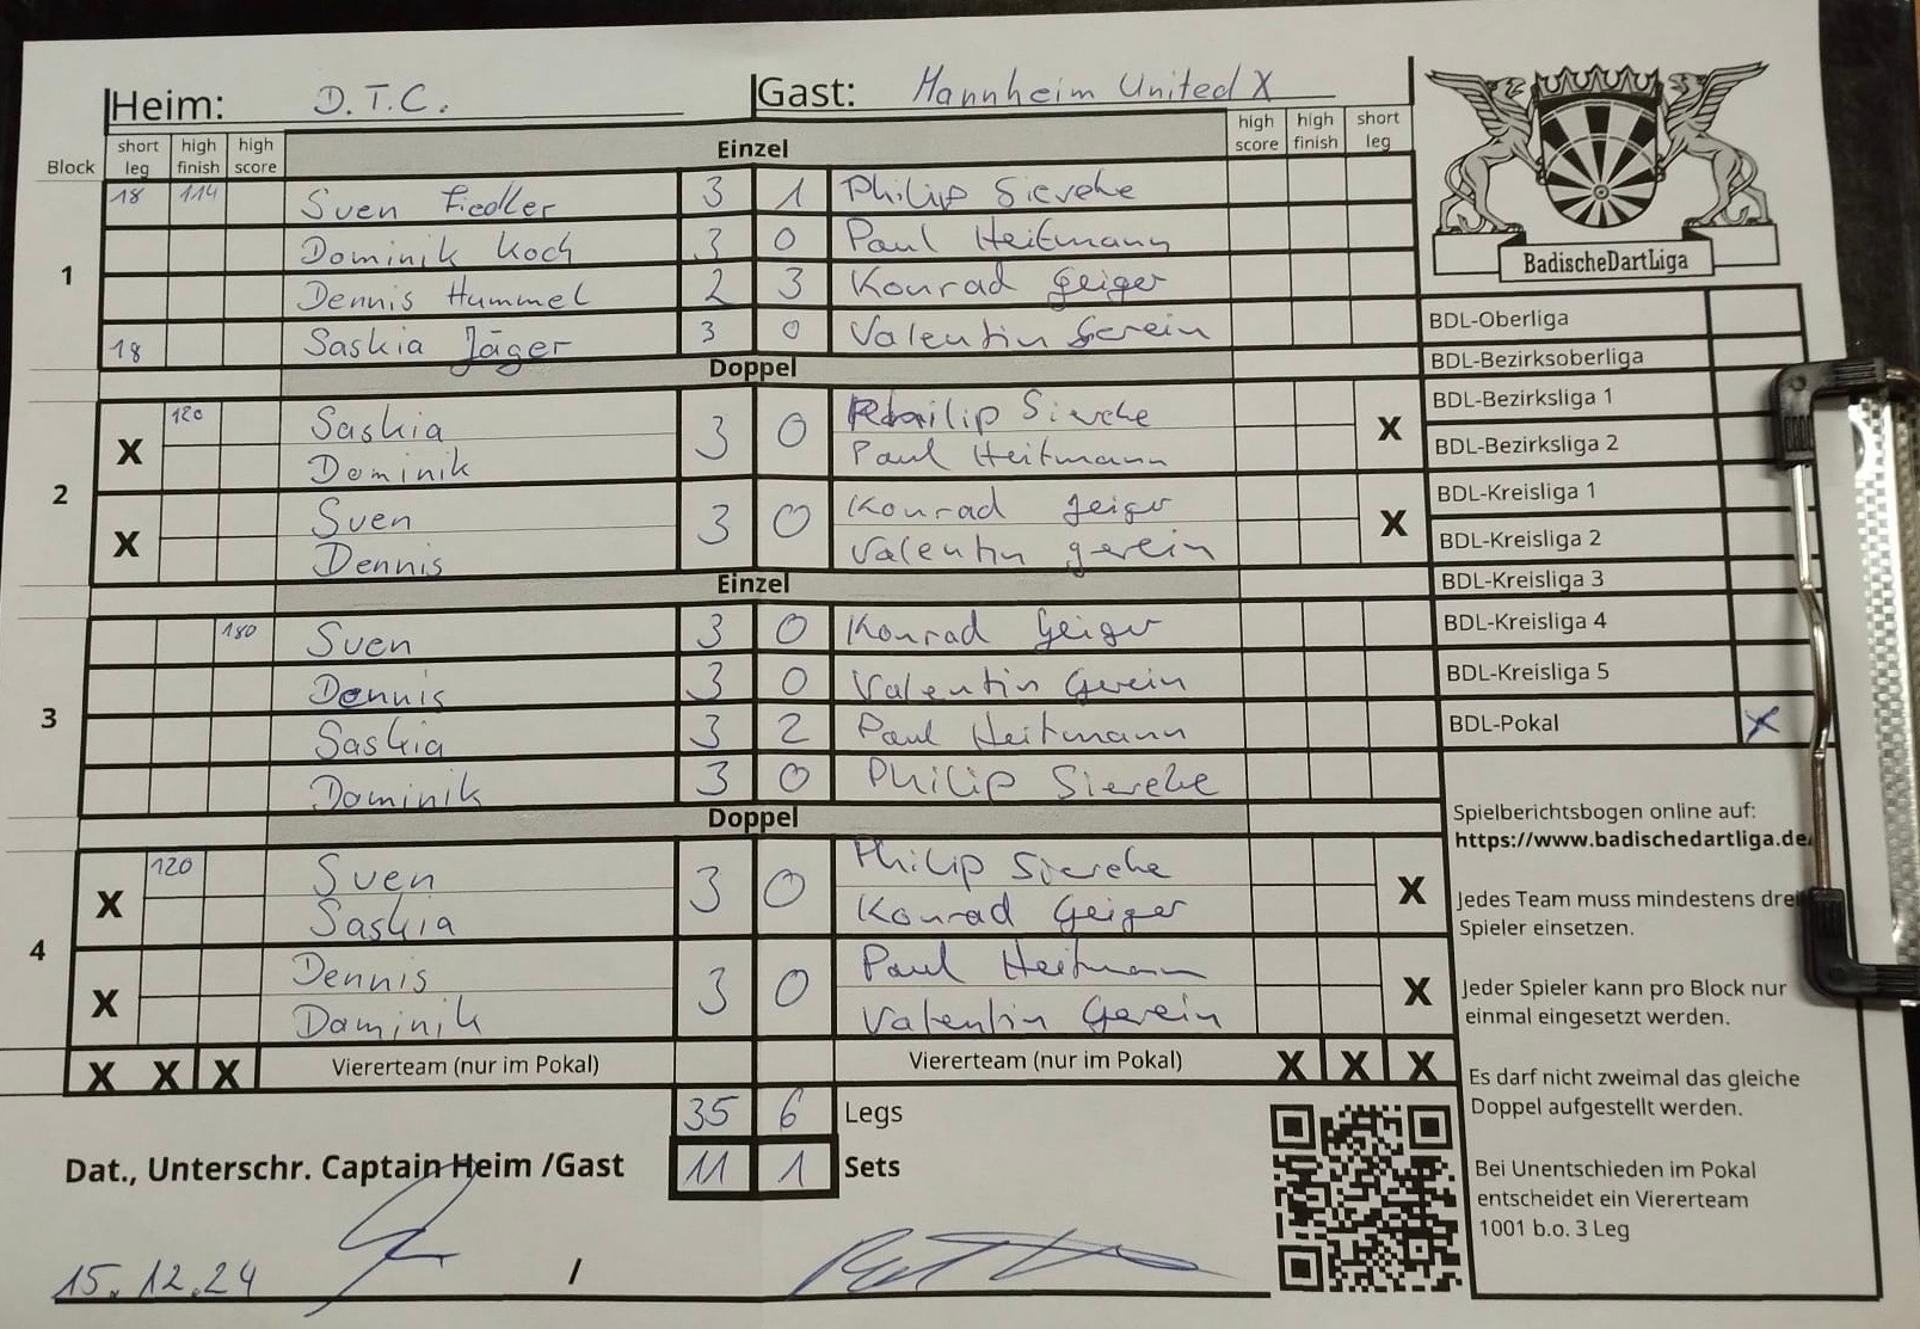 Heim: D.T.C. Gast: Mannheim United X
Block short leg high finish high score Einzel high score high finish short leg
1
18 114 Sven Fiedler 3 1 Philip Sieveke
Dominik Koch 3 0 Paul Heitmann
Dennis Hummel 2 3 Konrad Geiger
18 Saskia Jäger 3 0 Valentin Gerein
Doppel
2
X 120 Saskia 3 0 Philip Sieveke X
Dominik Paul Heitmann
X Sven 3 0 Konrad Geiger X
Dennis Valentin Gerein
Einzel
3
180 Sven 3 0 Konrad Geiger
Dennis 3 0 Valentin Gerein
Saskia 3 2 Paul Heitmann
Dominik 3 0 Philip Sieveke
Doppel
4
X 120 Sven 3 0 Philip Sieveke X
Saskia Konrad Geiger
X Dennis 3 0 Paul Heitmann X
Dominik Valentin Gerein
X X X Vierterteam (nur im Pokal) Vierterteam (nur im Pokal) X X X
35 6 Legs
Dat., Unterschr. Captain Heim /Gast 11 1 Sets
15.12.24 /
BadischeDartLiga
BDL-Oberliga
BDL-Bezirksoberliga
BDL-Bezirksliga 1
BDL-Bezirksliga 2
BDL-Kreisliga 1
BDL-Kreisliga 2
BDL-Kreisliga 3
BDL-Kreisliga 4
BDL-Kreisliga 5
BDL-Pokal X
Spielberichtsbogen online auf:
https://www.badischedartliga.de/
Jedes Team muss mindestens drei
Spieler einsetzen.
Jeder Spieler kann pro Block nur
einmal eingesetzt werden.
Es darf nicht zweimal das gleiche
Doppel aufgestellt werden.
Bei Unentschieden im Pokal
entscheidet ein Viererteam
1001 b.o. 3 Leg